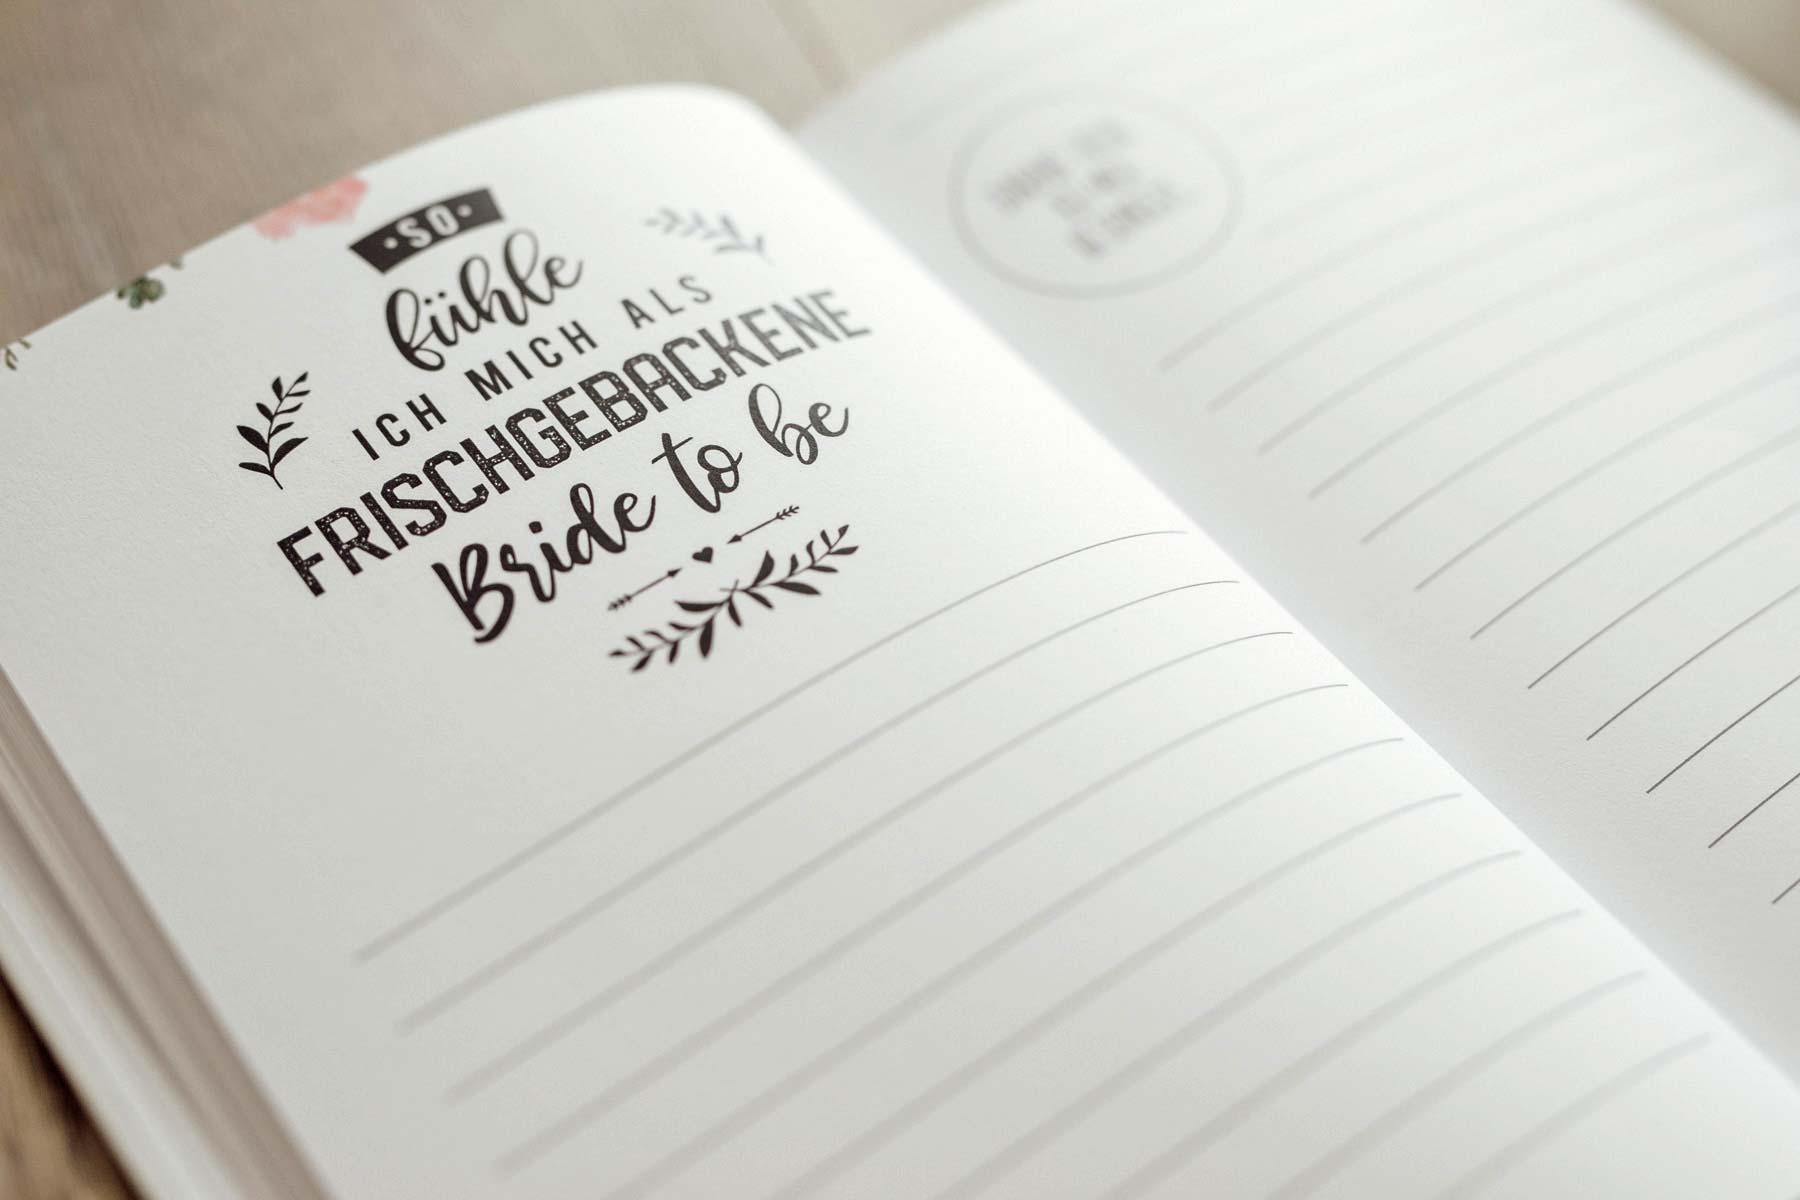 ·SO·
fühle
ICH MICH ALS
FRISCHGEBACKENE
Bride to be